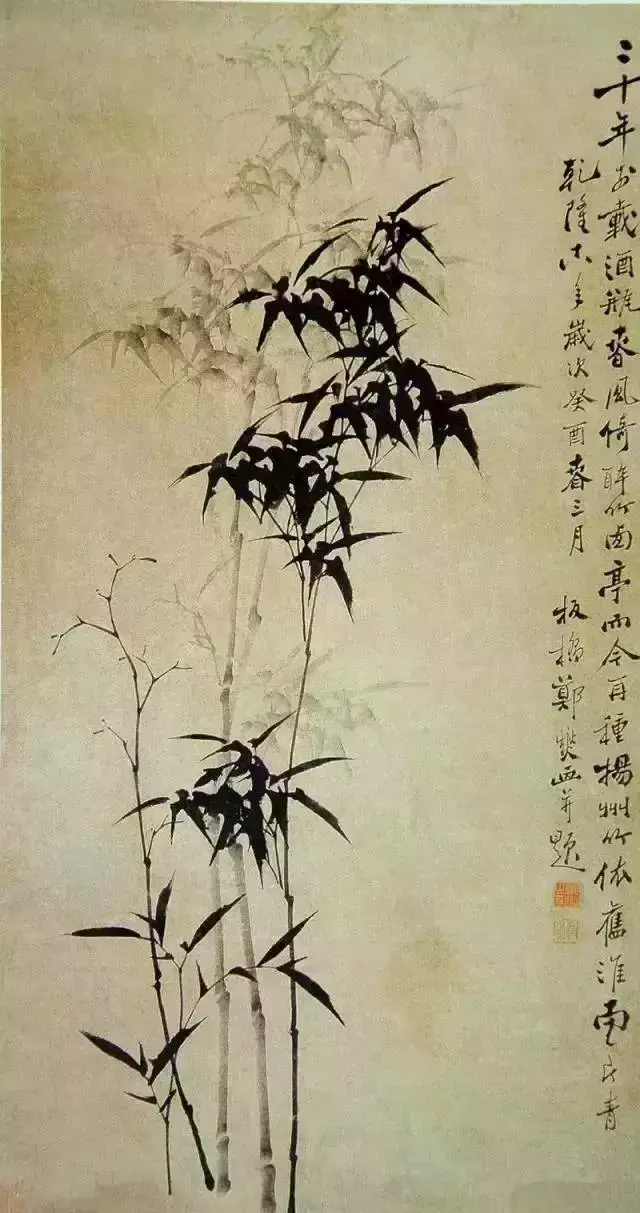 二十年前載酒瓶春風倚醉竹西亭而今再種揚州竹依舊淮南一片青
乾隆十八年歲次癸酉春三月
板橋鄭燮画并題